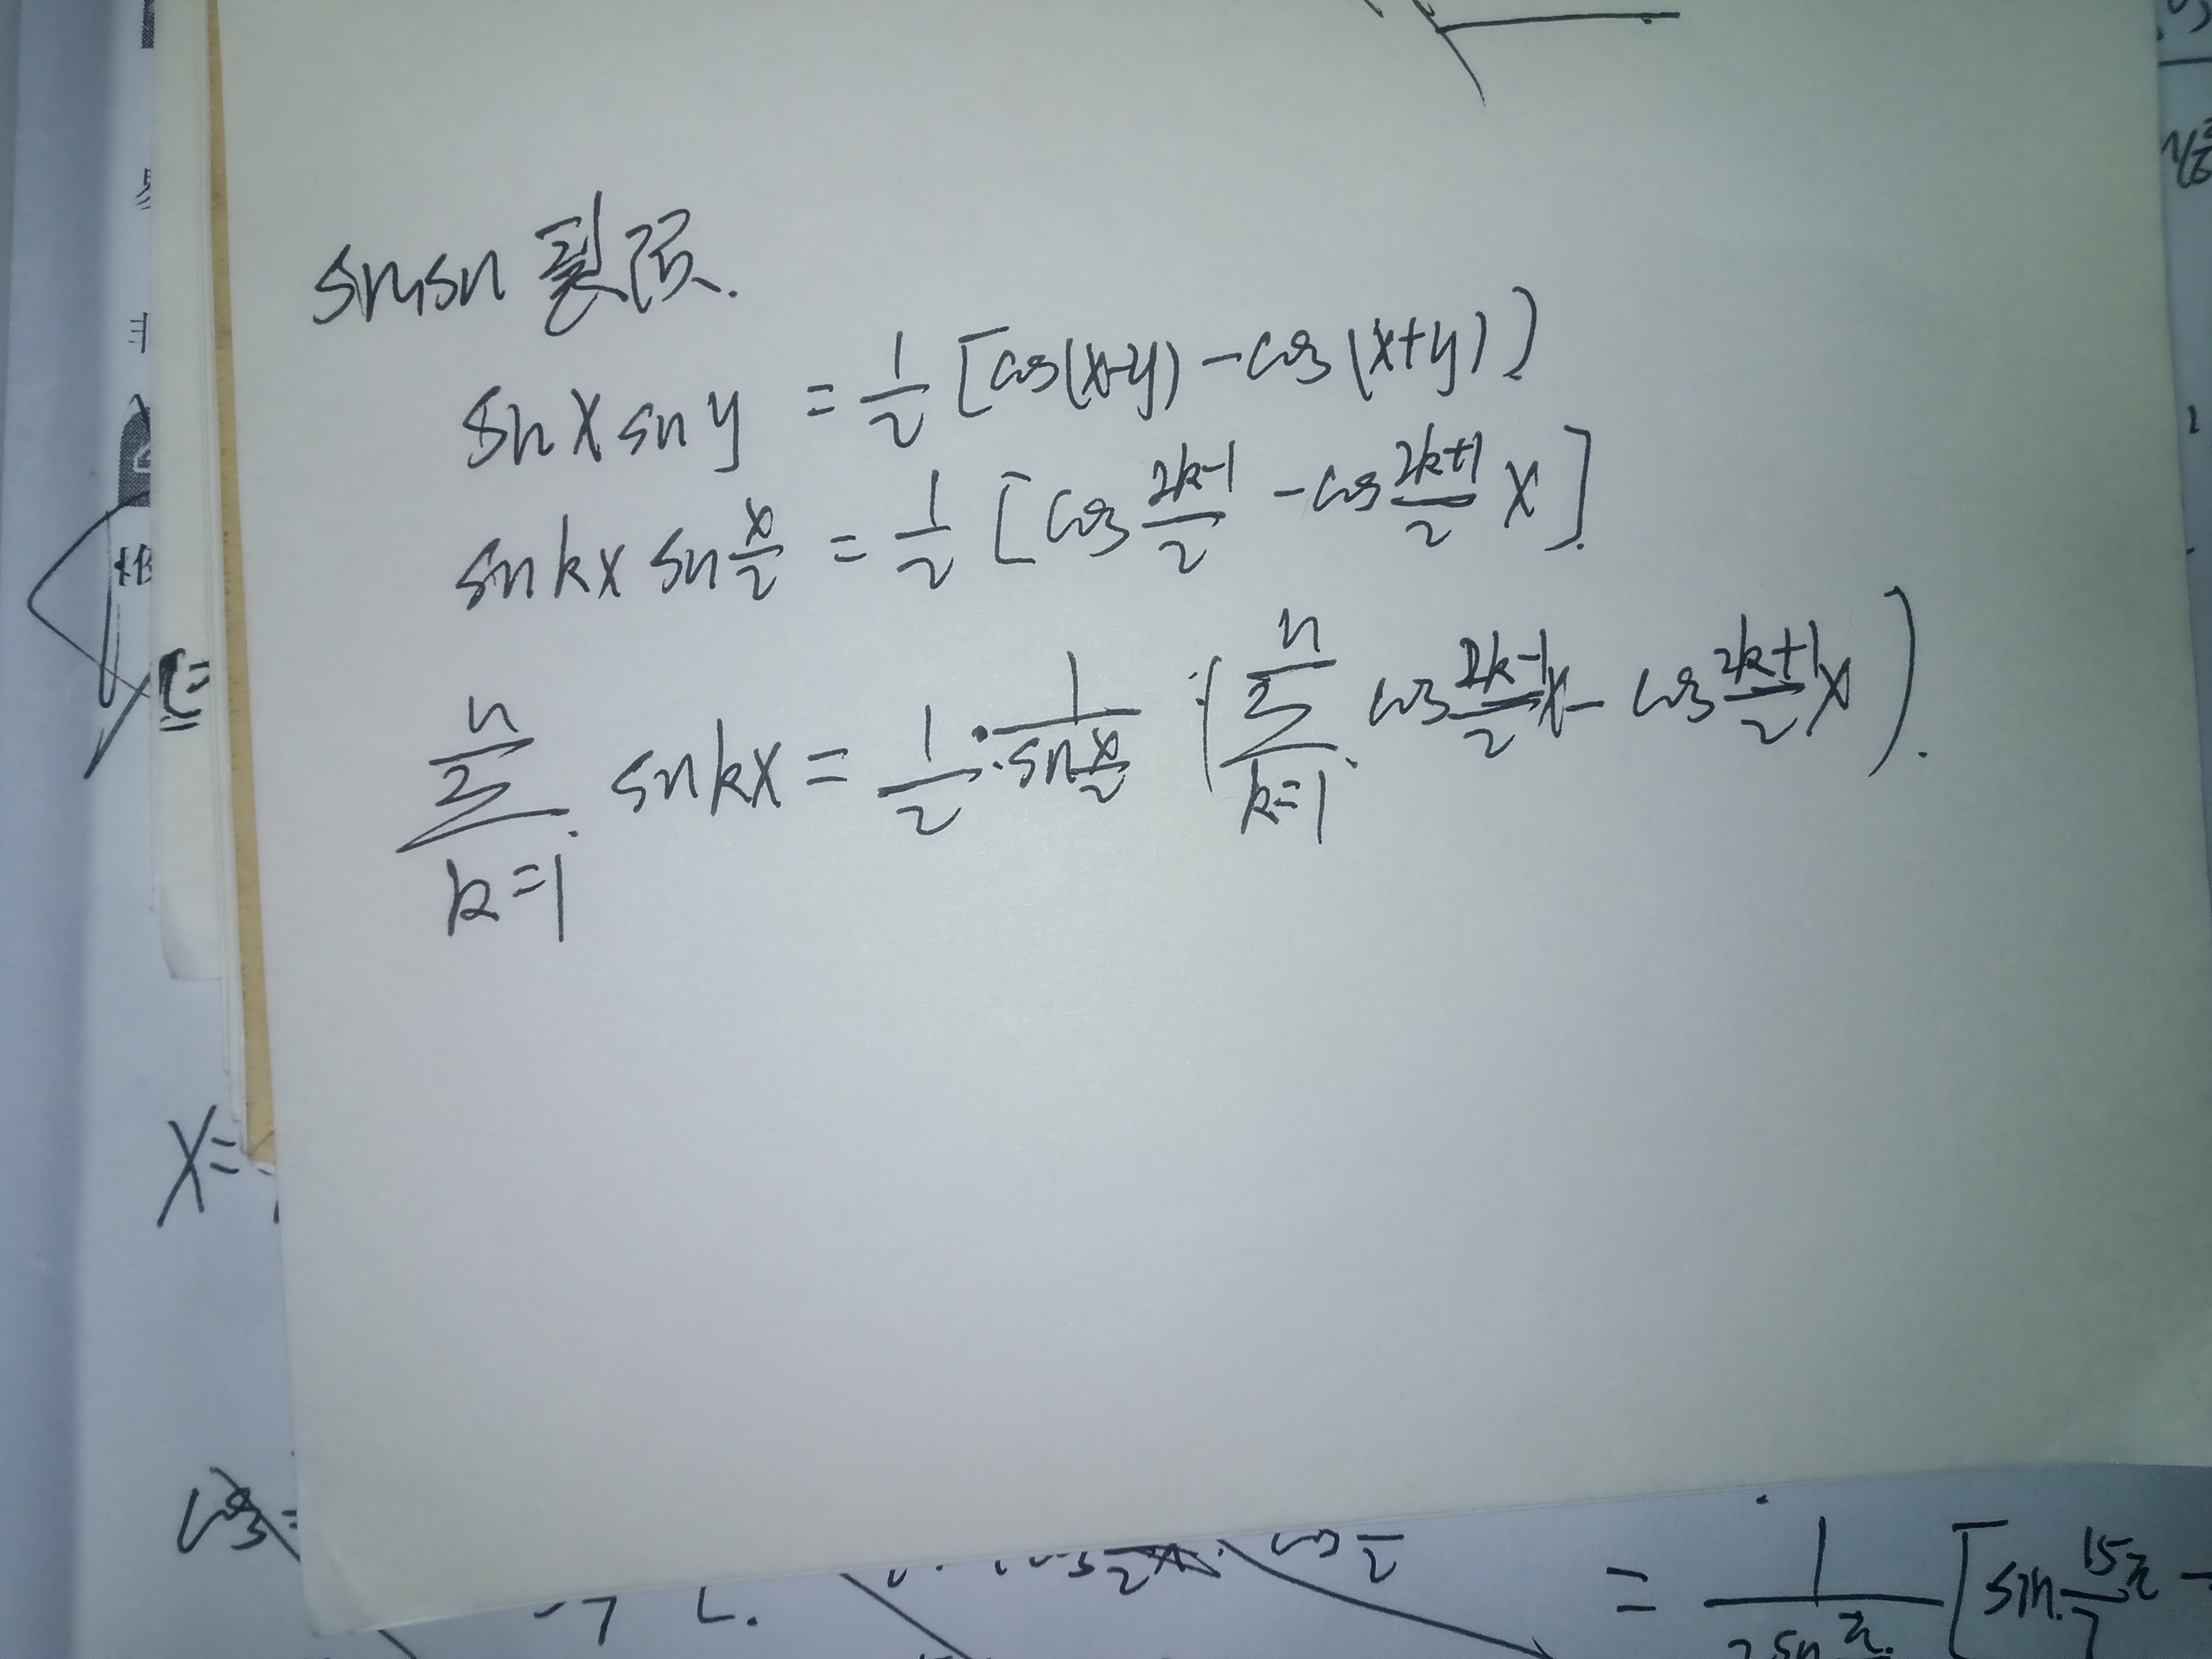 snsn 裂项.
sn x sn y = 1/2 [cos(x-y) - cos(x+y)]
sn kx sn x/2 = 1/2 [cos 2k-1/2 - cos 2k+1/2 x].
n∑k=1 sn kx = 1/2 · 1/sn x/2 · (n∑k=1 cos 2k-1/2 x - cos 2k+1/2 x).
x=
cos=
cos
= 1/2sn [sin 15π/7 -